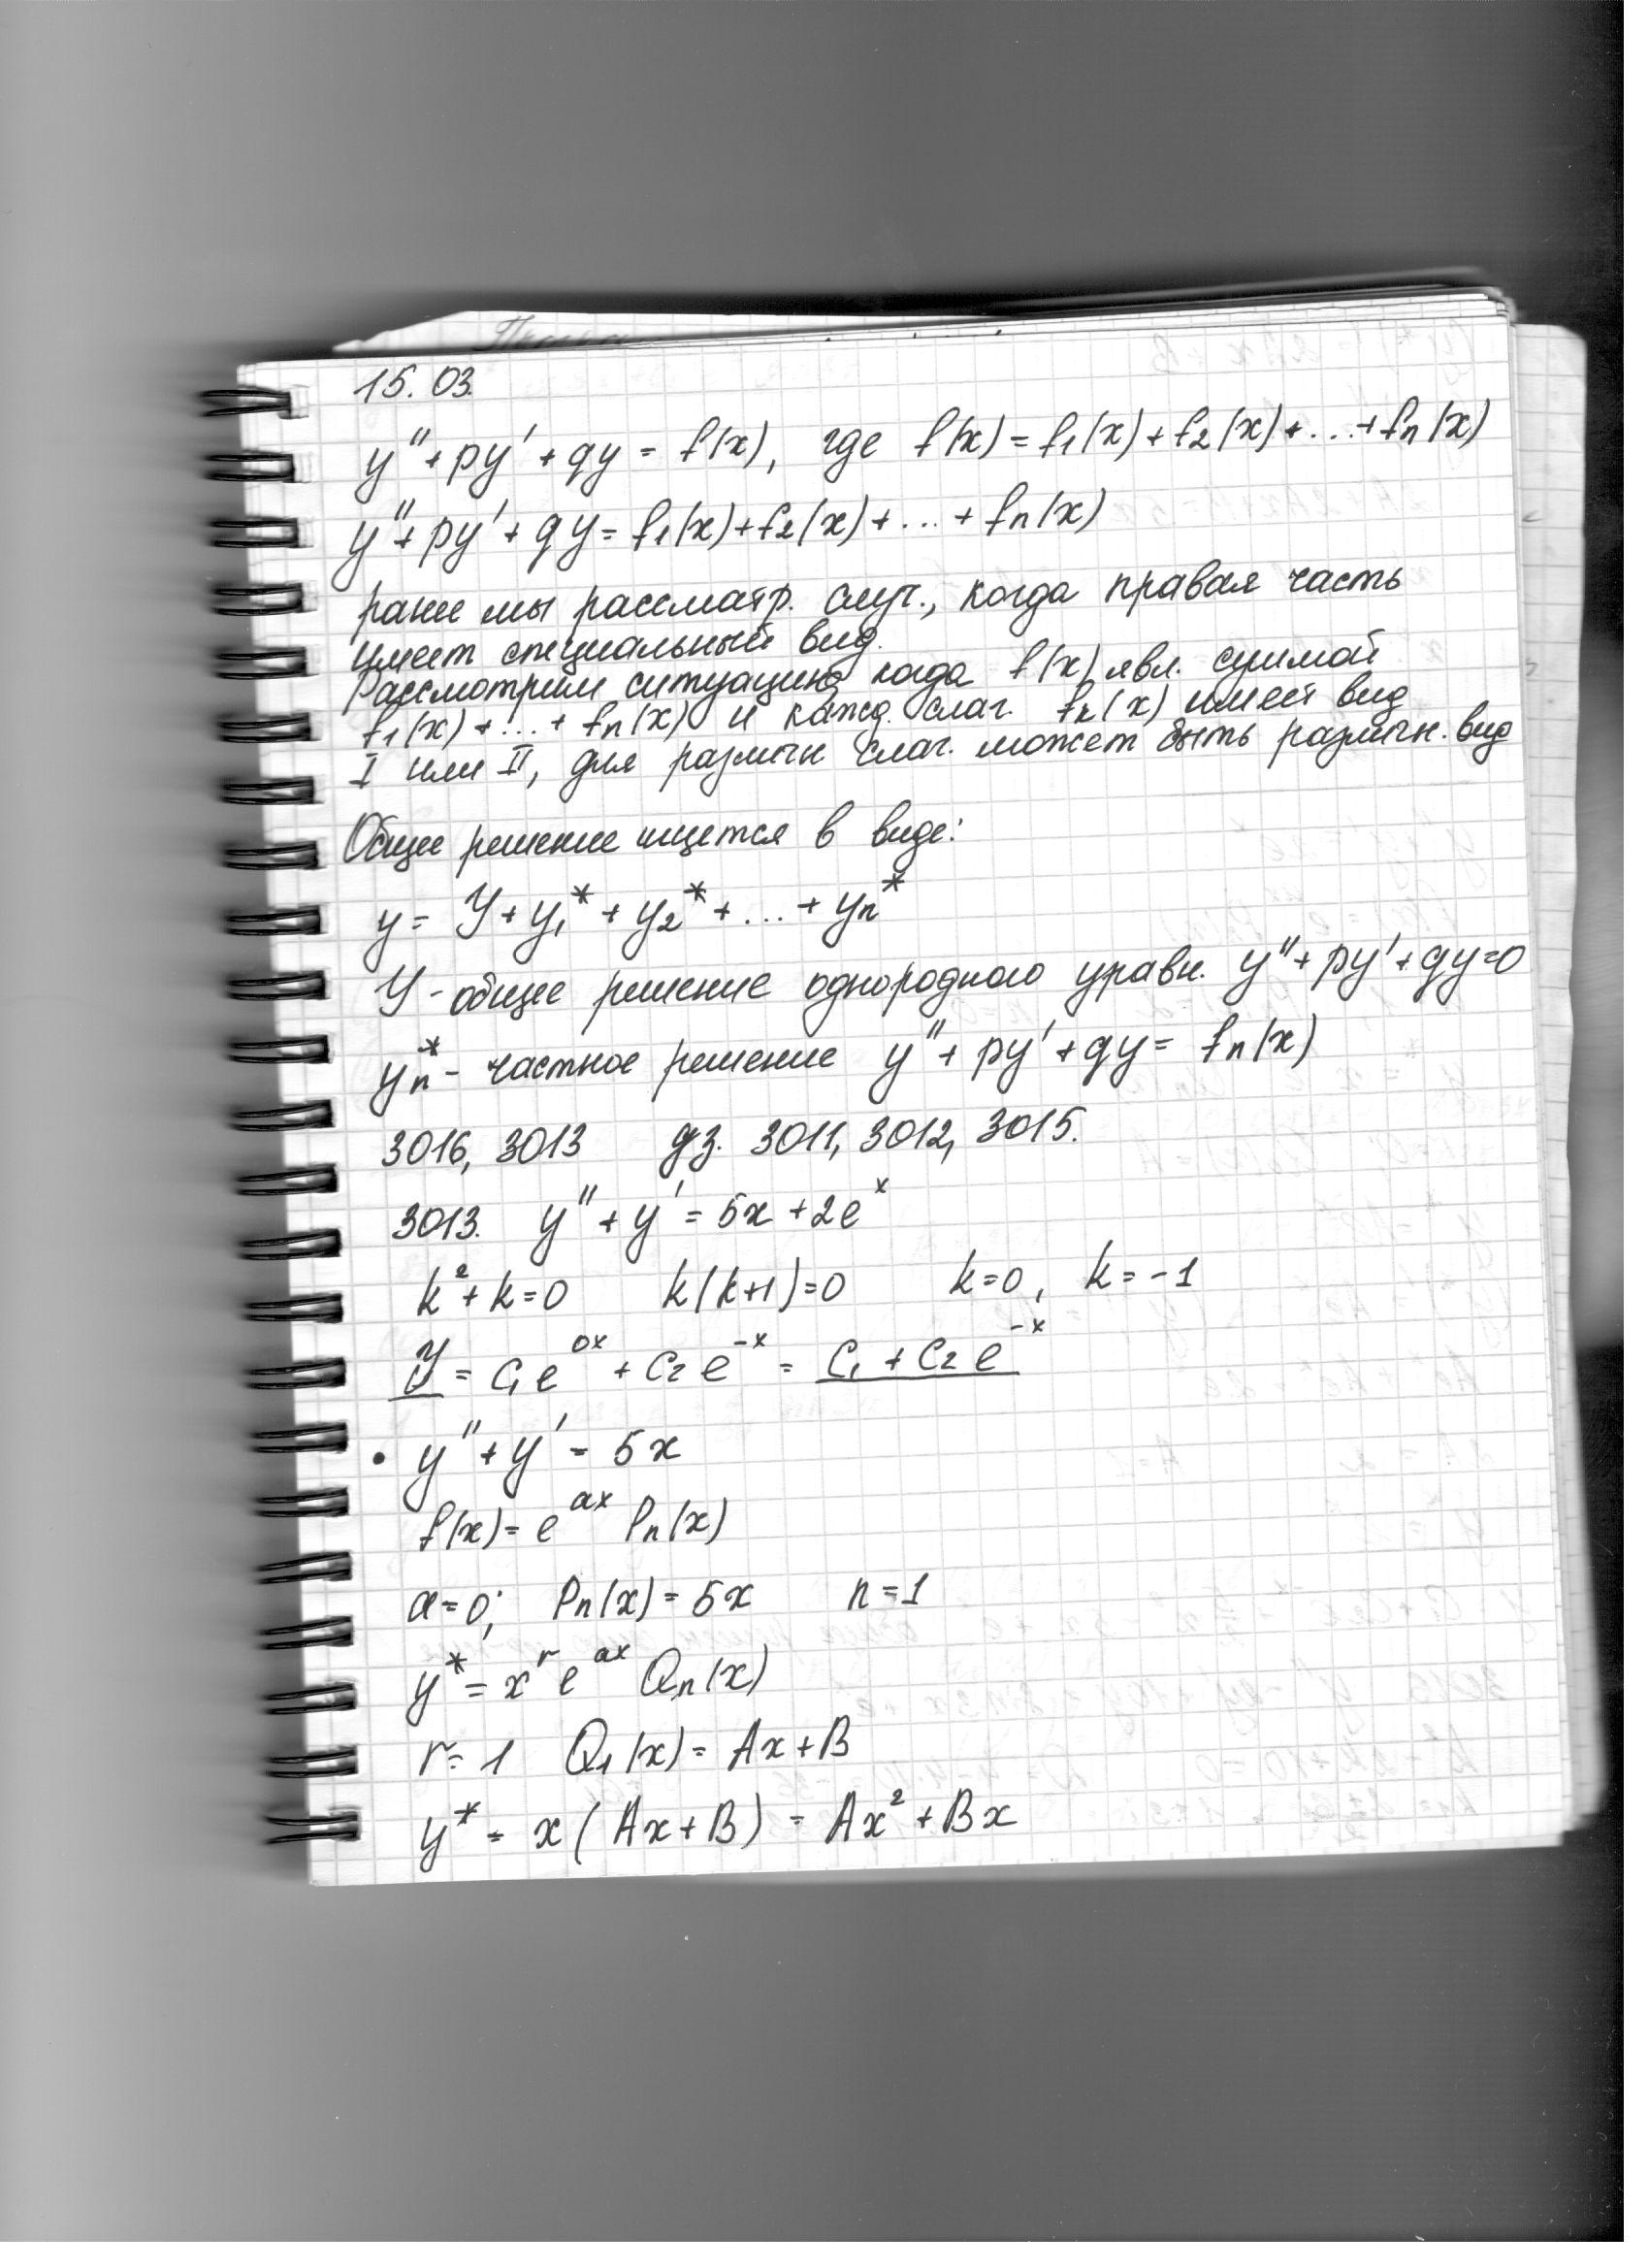 15.03.
y'' + py' + qy = f(x), где f(x) = f₁(x) + f₂(x) + ... + fn(x)
y'' + py' + qy = f₁(x) + f₂(x) + ... + fn(x)
ранее мы рассматр. случ., когда правая часть
имеет специальный вид.
Рассмотрим ситуацию когда f(x) явл. суммой
f₁(x) + ... + fn(x) и кажд. слаг. fk(x) имеет вид
I или II, для различн слаг. может быть различн. вид
Общее решение ищется в виде:
y = Y + y₁* + y₂* + ... + yn*
Y - общее решение однородного уравн. y'' + py' + qy = 0
yn* - частное решение y'' + py' + qy = fn(x)
3016, 3013 дз. 3011, 3012, 3015.
3013. y'' + y' = 5x + 2eˣ
k² + k = 0 k(k+1) = 0 k = 0, k = -1
Y = C₁e⁰ˣ + C₂e⁻ˣ = C₁ + C₂e⁻ˣ
• y'' + y' = 5x
f(x) = eᵃˣ Pn(x)
a = 0; Pn(x) = 5x n = 1
y* = xʳ eᵃˣ Qn(x)
r = 1 Q₁(x) = Ax + B
y* = x(Ax + B) = Ax² + Bx